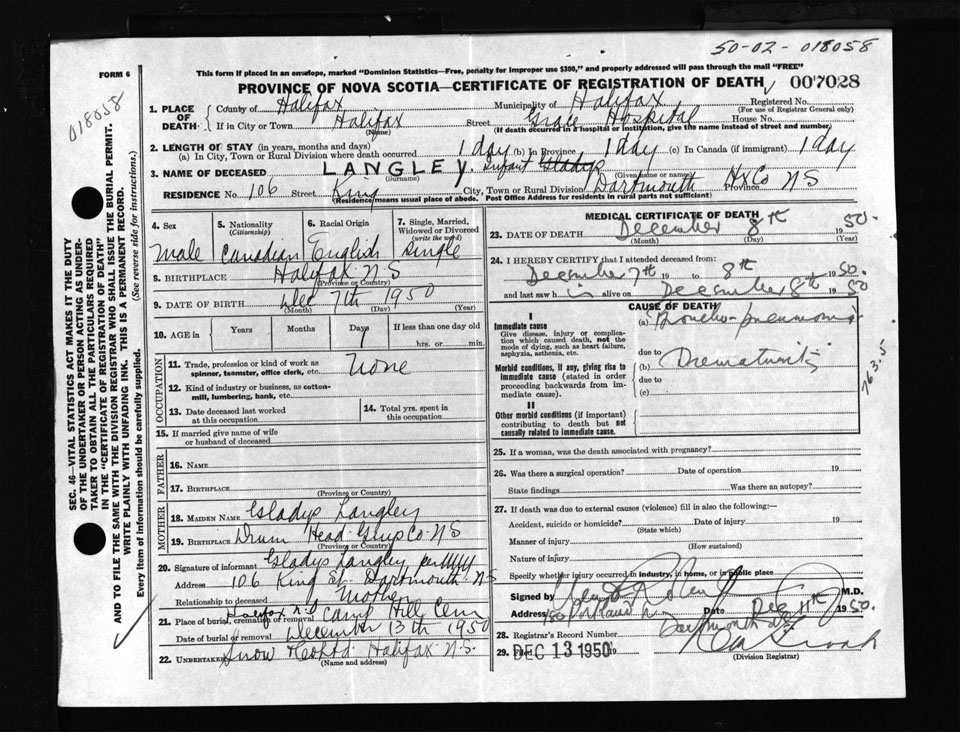 50-02-018058
This form if placed in an envelope, marked "Dominion Statistics—Free, penalty for improper use $300," and properly addressed will pass through the mail "FREE"
FORM 6
PROVINCE OF NOVA SCOTIA—CERTIFICATE OF REGISTRATION OF DEATH
007028
018058
1. PLACE OF DEATH: County of Halifax Municipality of Halifax Registered No.
(For use of Registrar General only)
If in City or Town Halifax Street Grace Hospital House No.
(Name) (If death occurred in a hospital or institution, give the name instead of street and number)
2. LENGTH OF STAY (in years, months and days)
(a) In City, Town or Rural Division where death occurred 1 day (b) In Province 1 day (c) In Canada (if immigrant) 1 day
3. NAME OF DECEASED LANGLEY, Infant Gladys
(Surname) (Given name or names)
RESIDENCE No. 106 Street King City, Town or Rural Division Dartmouth Hx Co Province NS
(Residence means usual place of abode. Post Office Address for residents in rural parts not sufficient)
SEC. 46—VITAL STATISTICS ACT MAKES IT THE DUTY
OF THE UNDERTAKER OR PERSON ACTING AS UNDER-
TAKER TO OBTAIN ALL THE PARTICULARS REQUIRED
IN THE "CERTIFICATE OF REGISTRATION OF DEATH"
AND TO FILE THE SAME WITH THE DIVISION REGISTRAR WHO SHALL ISSUE THE BURIAL PERMIT.
WRITE PLAINLY WITH UNFADING INK. THIS IS A PERMANENT RECORD.
Every item of information should be carefully supplied. (See reverse side for instructions.)
4. Sex
Male
5. Nationality
(Citizenship)
Canadian
6. Racial Origin
English
7. Single, Married,
Widowed or Divorced
(write the word)
Single
8. BIRTHPLACE Halifax NS
(Province or Country)
9. DATE OF BIRTH Dec 7th 1950
(Month) (Day) (Year)
10. AGE in Years Months Days If less than one day old
1 hrs. or min.
OCCUPATION
11. Trade, profession or kind of work as
spinner, teamster, office clerk, etc. None
12. Kind of industry or business, as cotton-
mill, lumbering, bank, etc.
13. Date deceased last worked
at this occupation
14. Total yrs. spent in
this occupation
15. If married give name of wife
or husband of deceased
FATHER
16. NAME
17. BIRTHPLACE
(Province or Country)
MOTHER
18. MAIDEN NAME Gladys Langley
19. BIRTHPLACE Drum Head Guys Co NS
(Province or Country)
20. Signature of informant Gladys Langley per
Address 106 King St Dartmouth NS
Relationship to deceased Mother
21. Place of burial, cremation or removal Halifax N.S Camp Hill Cem
Date of burial or removal December 13th 1950
22. UNDERTAKER Snow & Co Ltd Halifax N.S.
(Name and address)
MEDICAL CERTIFICATE OF DEATH
23. DATE OF DEATH December 8th 1950.
(Month) (Day) (Year)
24. I HEREBY CERTIFY that I attended deceased from:
December 7th 19 to 8th 1950.
and last saw him alive on December 8th 1950
CAUSE OF DEATH
I
Immediate cause
Give disease, injury or complica-
tion which caused death, not the
mode of dying, such as heart failure,
asphyxia, asthenia, etc.
(a) Broncho-pneumonia
due to
Morbid conditions, if any, giving rise to
immediate cause (stated in order
proceeding backwards from im-
mediate cause).
(b) Prematurity
due to
(c)
763.5
II
Other morbid conditions (if important)
contributing to death but not
causally related to immediate cause.
25. If a woman, was the death associated with pregnancy?
26. Was there a surgical operation? Date of operation 19
State findings Was there an autopsy?
27. If death was due to external causes (violence) fill in also the following:—
Accident, suicide or homicide? Date of injury 19
(State which)
Manner of injury
(How sustained)
Nature of injury
Specify whether injury occurred in industry, in home, or in public place
Signed by M.D.
Address Date Dec 11th 1950.
Dartmouth
28. Registrar's Record Number
29. DEC 13 1950 19
(Division Registrar)